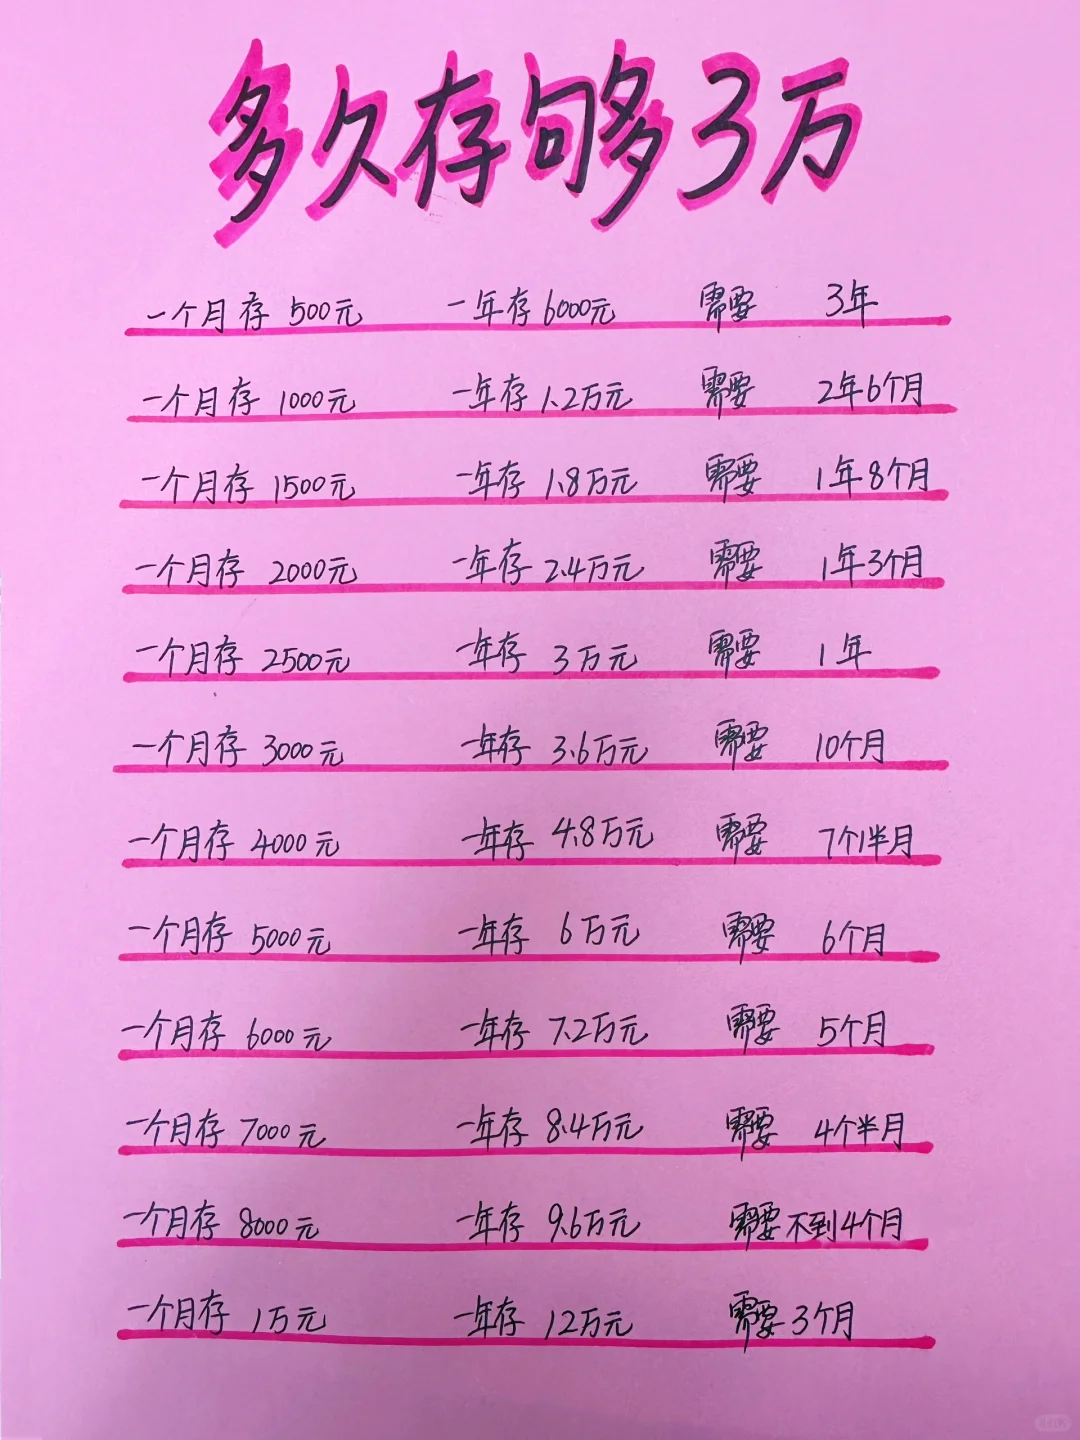 多久存够3万
一个月存 500元 一年存 6000元 需要 3年
一个月存 1000元 一年存 1.2万元 需要 2年6个月
一个月存 1500元 一年存 1.8万元 需要 1年8个月
一个月存 2000元 一年存 2.4万元 需要 1年3个月
一个月存 2500元 一年存 3万元 需要 1年
一个月存 3000元 一年存 3.6万元 需要 10个月
一个月存 4000元 一年存 4.8万元 需要 7个半月
一个月存 5000元 一年存 6万元 需要 6个月
一个月存 6000元 一年存 7.2万元 需要 5个月
一个月存 7000元 一年存 8.4万元 需要 4个半月
一个月存 8000元 一年存 9.6万元 需要 不到4个月
一个月存 1万元 一年存 12万元 需要 3个月